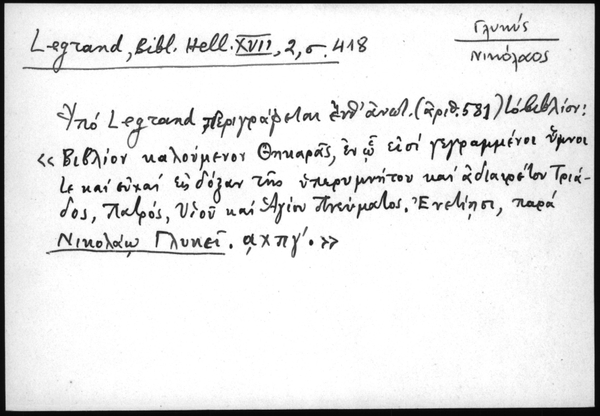 Γλυκύς
Νικόλαος
Legrand, Bibl. Hell. XVII, 2, σ. 418
Ὑπό Legrand περιγράφεται ἐνθ' ἀνωτ. (ἀριθ. 581) τό βιβλίον:
«Βιβλίον καλούμενον Θηκαρᾶς, ἐν ᾧ εἰσί γεγραμμένοι ὕμνοι
τε καί εὐχαί εἰς δόξαν τῆς ὑπερυμνήτου καί ἀδιαιρέτου Τριά-
δος, Πατρός, Υἱοῦ καί Ἁγίου Πνεύματος. Ἐνετίησι, παρά
Νικολάῳ Γλυκεῖ. αχπγ'.»